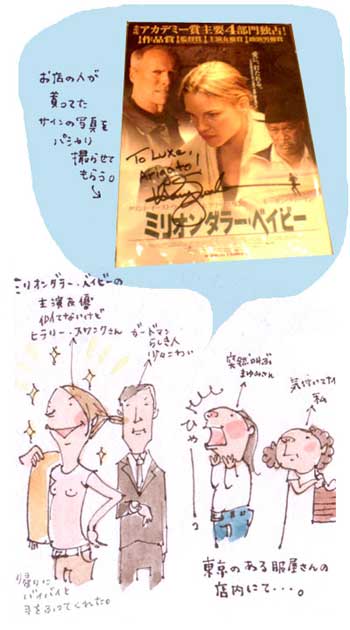 アカデミー賞主要4部門独占!
作品賞 監督賞 主演女優賞 助演男優賞
To Luxe,
Arigato!
ミリオンダラー・ベイビー
お店の人が
貰ってた
サインの写真を
パシャリ
撮らせて
もらう。
ミリオンダラー・ベイビーの
主演女優
似てないけど
ヒラリー・スワンクさん
ガードマン
らしき人
少々こわい
突然叫ぶ
まゆみさん
気付いてない
私
ひゃーっ
帰りに
バイバイと
手をふってくれた。
東京のある服屋さんの
店内にて・・・。